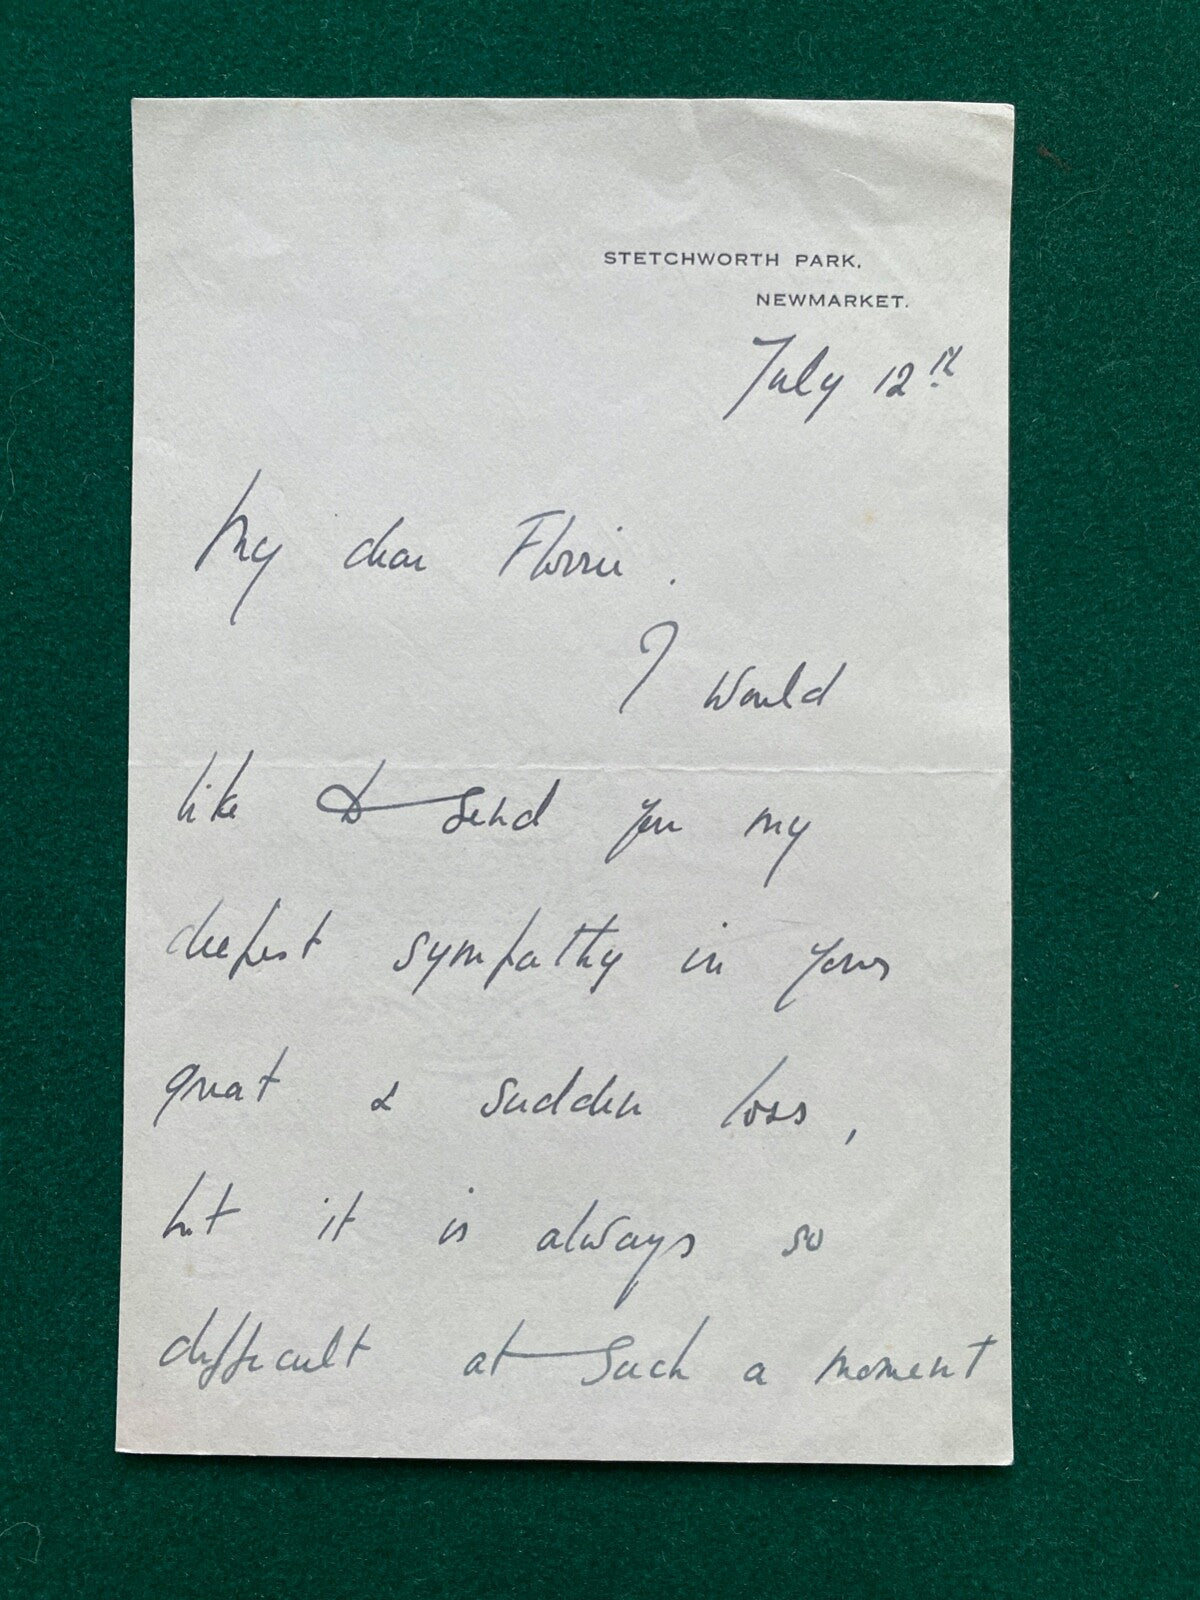 STETCHWORTH PARK,
NEWMARKET.
July 12th
My dear Florrie.
I would
like to send you my
deepest sympathy in your
great & sudden loss,
but it is always so
difficult at such a moment